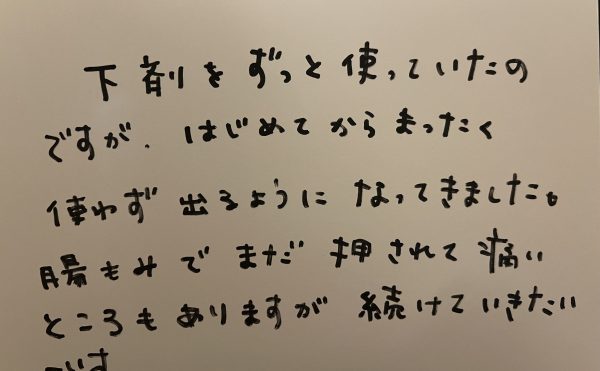 下剤をずっと使っていたの
ですが、はじめてからまったく
使わず出るようになってきました。
腸もみでまだ押されて痛い
ところもありますが続けていきたい
です